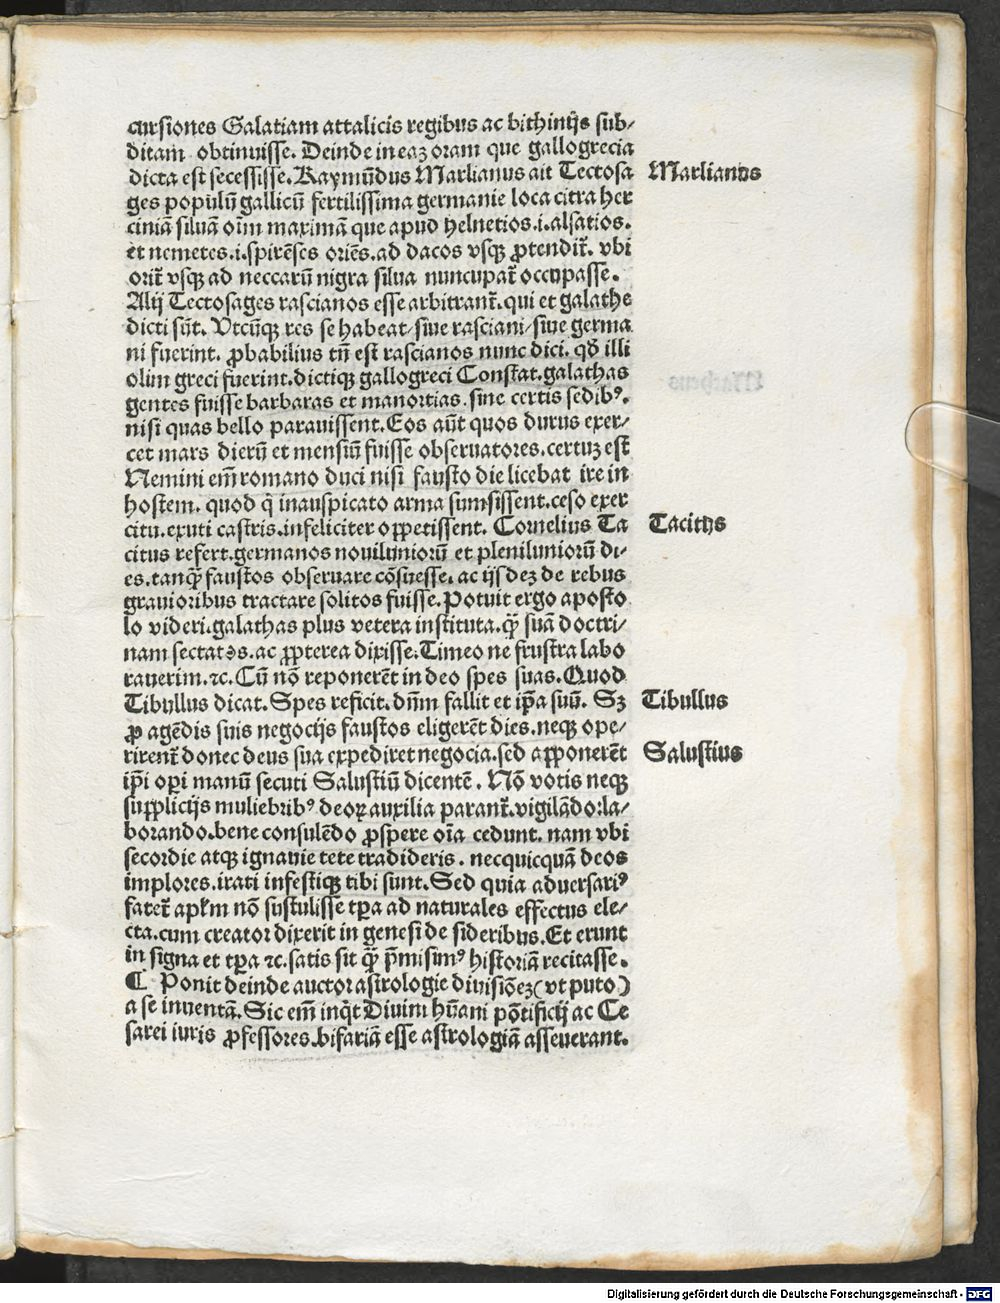 cursiones Galatiam attalicis regibus ac bithinijs sub/
ditam obtinuisse. Deinde in eaz oram que gallogrecia
dicta est secessisse. Raymūdus Marlianus ait Tectosa
Marlianus
ges populū gallicū fertilissima germanie loca citra her
ciniā siluā oīm maximā que apud heluetios .i. alsatios.
et nemetes .i. spirēses oriēs. ad dacos vsqꝫ ꝓtendit̄. vbi
orit̄ vsqꝫ ad neccarū nigra silua nuncupat̄ occupasse.
Alij Tectosages rascianos esse arbitrant̄. qui et galathe
dicti sūt. Vtcūqꝫ res se habeat/ siue rasciani/ siue germa
ni fuerint. ꝓbabilius tn̄ est rascianos nunc dici. qđ illi
olim greci fuerint. dictiqꝫ gallogreci Constat. galathas
gentes fuisse barbaras et manortias. sine certis sedibꝰ.
nisi quas bello parauissent. Eos aūt quos durus exer/
cet mars dierū et mensiū fuisse obseruatores. certuz est
Nemini em̄ romano duci nisi fausto die licebat ire in
hostem. quod q̄ inauspicato arma sumsissent. ceso exer
citu. exuti castris. infeliciter oppetissent. Cornelius Ta
Tacitus
citus refert. germanos nouiluniorū et pleniluniorū di/
es. tanqꝫ̄ faustos obseruare cōsuesse. ac ijsdez de rebus
grauioribus tractare solitos fuisse. Potuit ergo aposto
lo videri. galathas plus vetera instituta. qꝫ̄ suā doctri/
nam sectatos. ac ꝓpterea dixisse. Timeo ne frustra labo
rauerim. ⁊c. Cū nō reponerēt in deo spes suas. Quod
Tibullus dicat. Spes reficit. dn̄m fallit et ip̄a suū. Sꝫ
Tibullus
ꝓ agēdis suis negocijs faustos eligerēt dies. neqꝫ ope/
rirent̄ donec deus sua expediret negocia. sed apponerēt
Salustius
ip̄i oꝑi manū secuti Salustiū dicentē. Nō votis neqꝫ
supplicijs muliebribꝰ deoꝝ auxilia parant̄. vigilādo: la/
borando. bene consulēdo ꝓspere oīa cedunt. nam vbi
secordie atqꝫ ignauie tete tradideris. necquicquā deos
implores. irati infestiqꝫ tibi sunt. Sed quia aduersariꝰ
fatet̄ apl'm nō sustulisse tꝑa ad naturales effectus ele/
cta. cum creator dixerit in genesi de sideribus. Et erunt
in signa et tꝑa ⁊c. satis sit qꝫ̄ p̄misimꝰ historiā recitasse.
¶ Ponit deinde auctor astrologie diuisiōez (vt puto)
a se inuentā. Sic em̄ inq̄t Diuini hūani pōtificij ac Ce
sarei iuris ꝓfessores. bifariā esse astrologiā asseuerant.
Digitalisierung gefördert durch die Deutsche Forschungsgemeinschaft - DFG